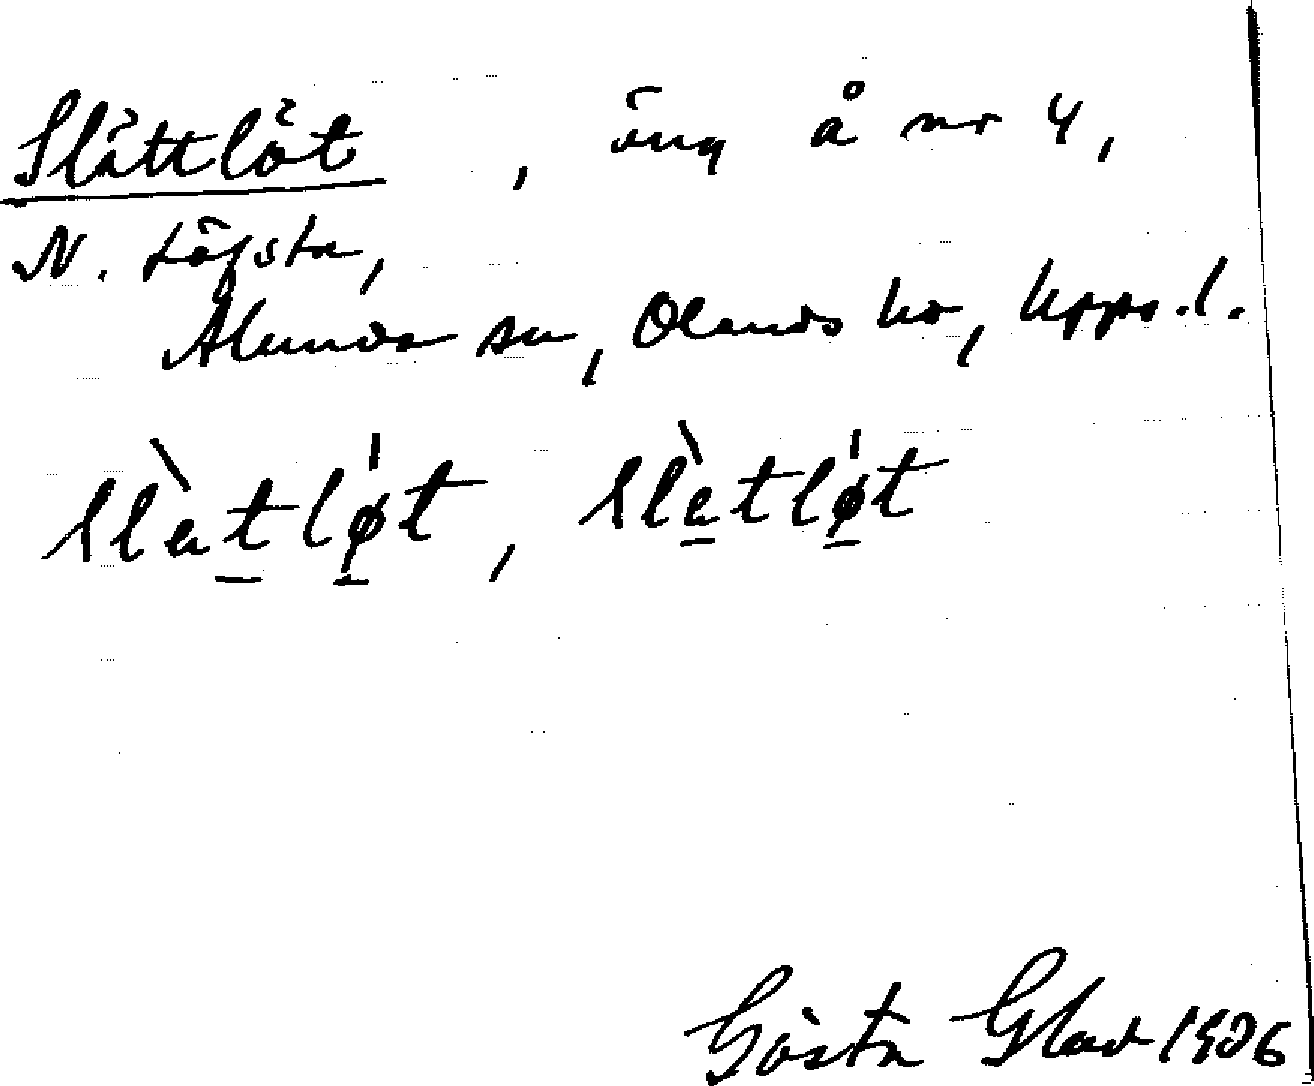 Slättlöt, äng å nr 4,
N. Löfsta,
Alunda sn, Olands hd, Upps. l.
slὲtlǿt, slὲtlǿt
Gösta Glad 1936